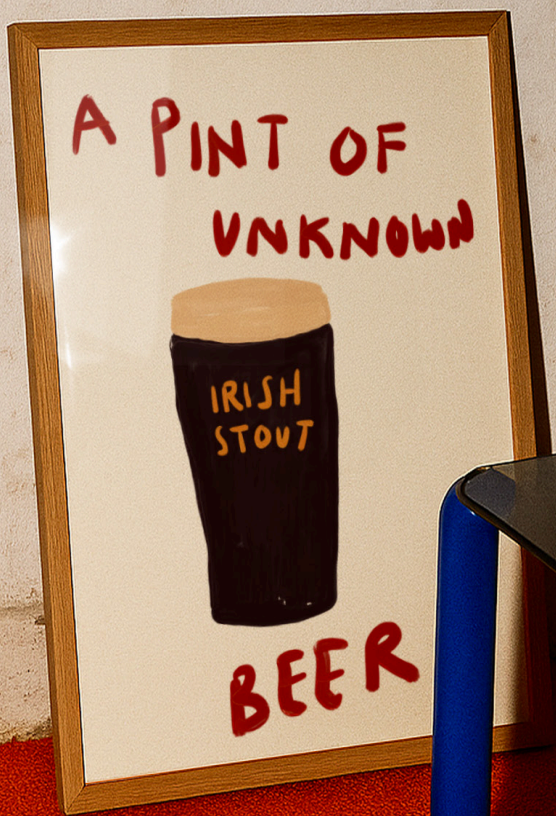 A PINT OF
UNKNOWN
IRISH
STOUT
BEER